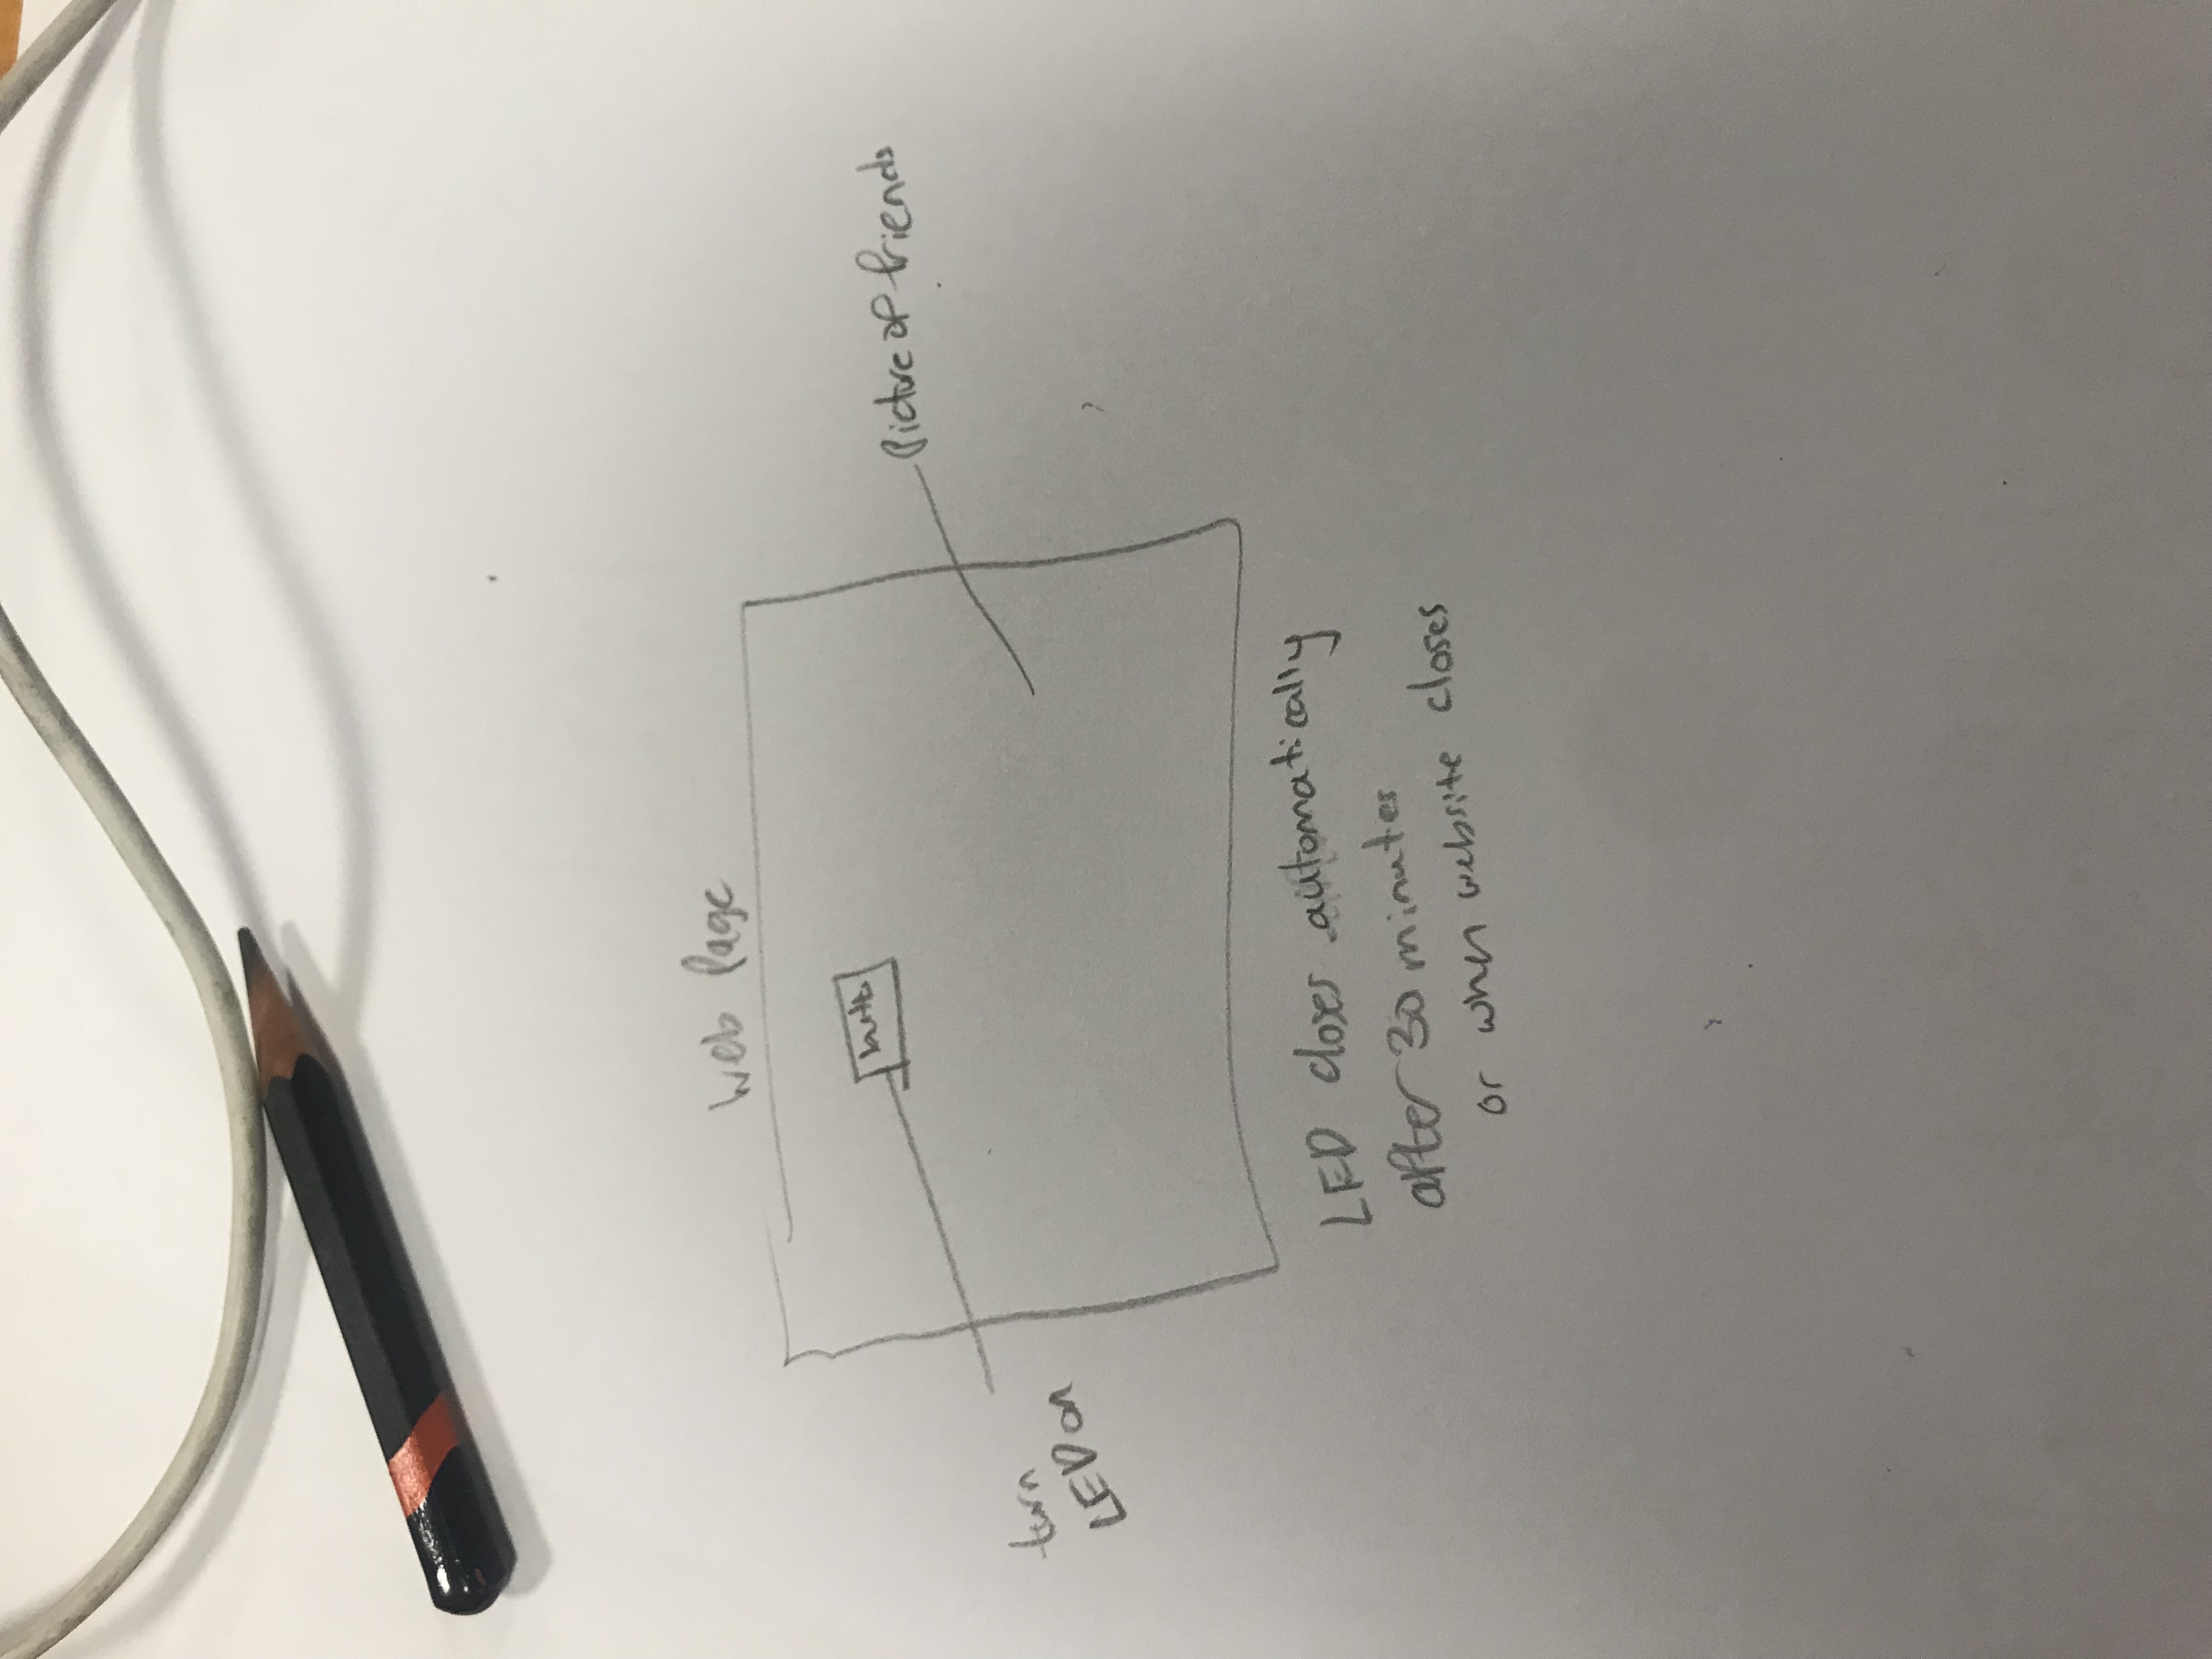 Web Page
butto
Picture of friends
turn
LED on
LED closes automatically
after 30 minutes
or when website closes